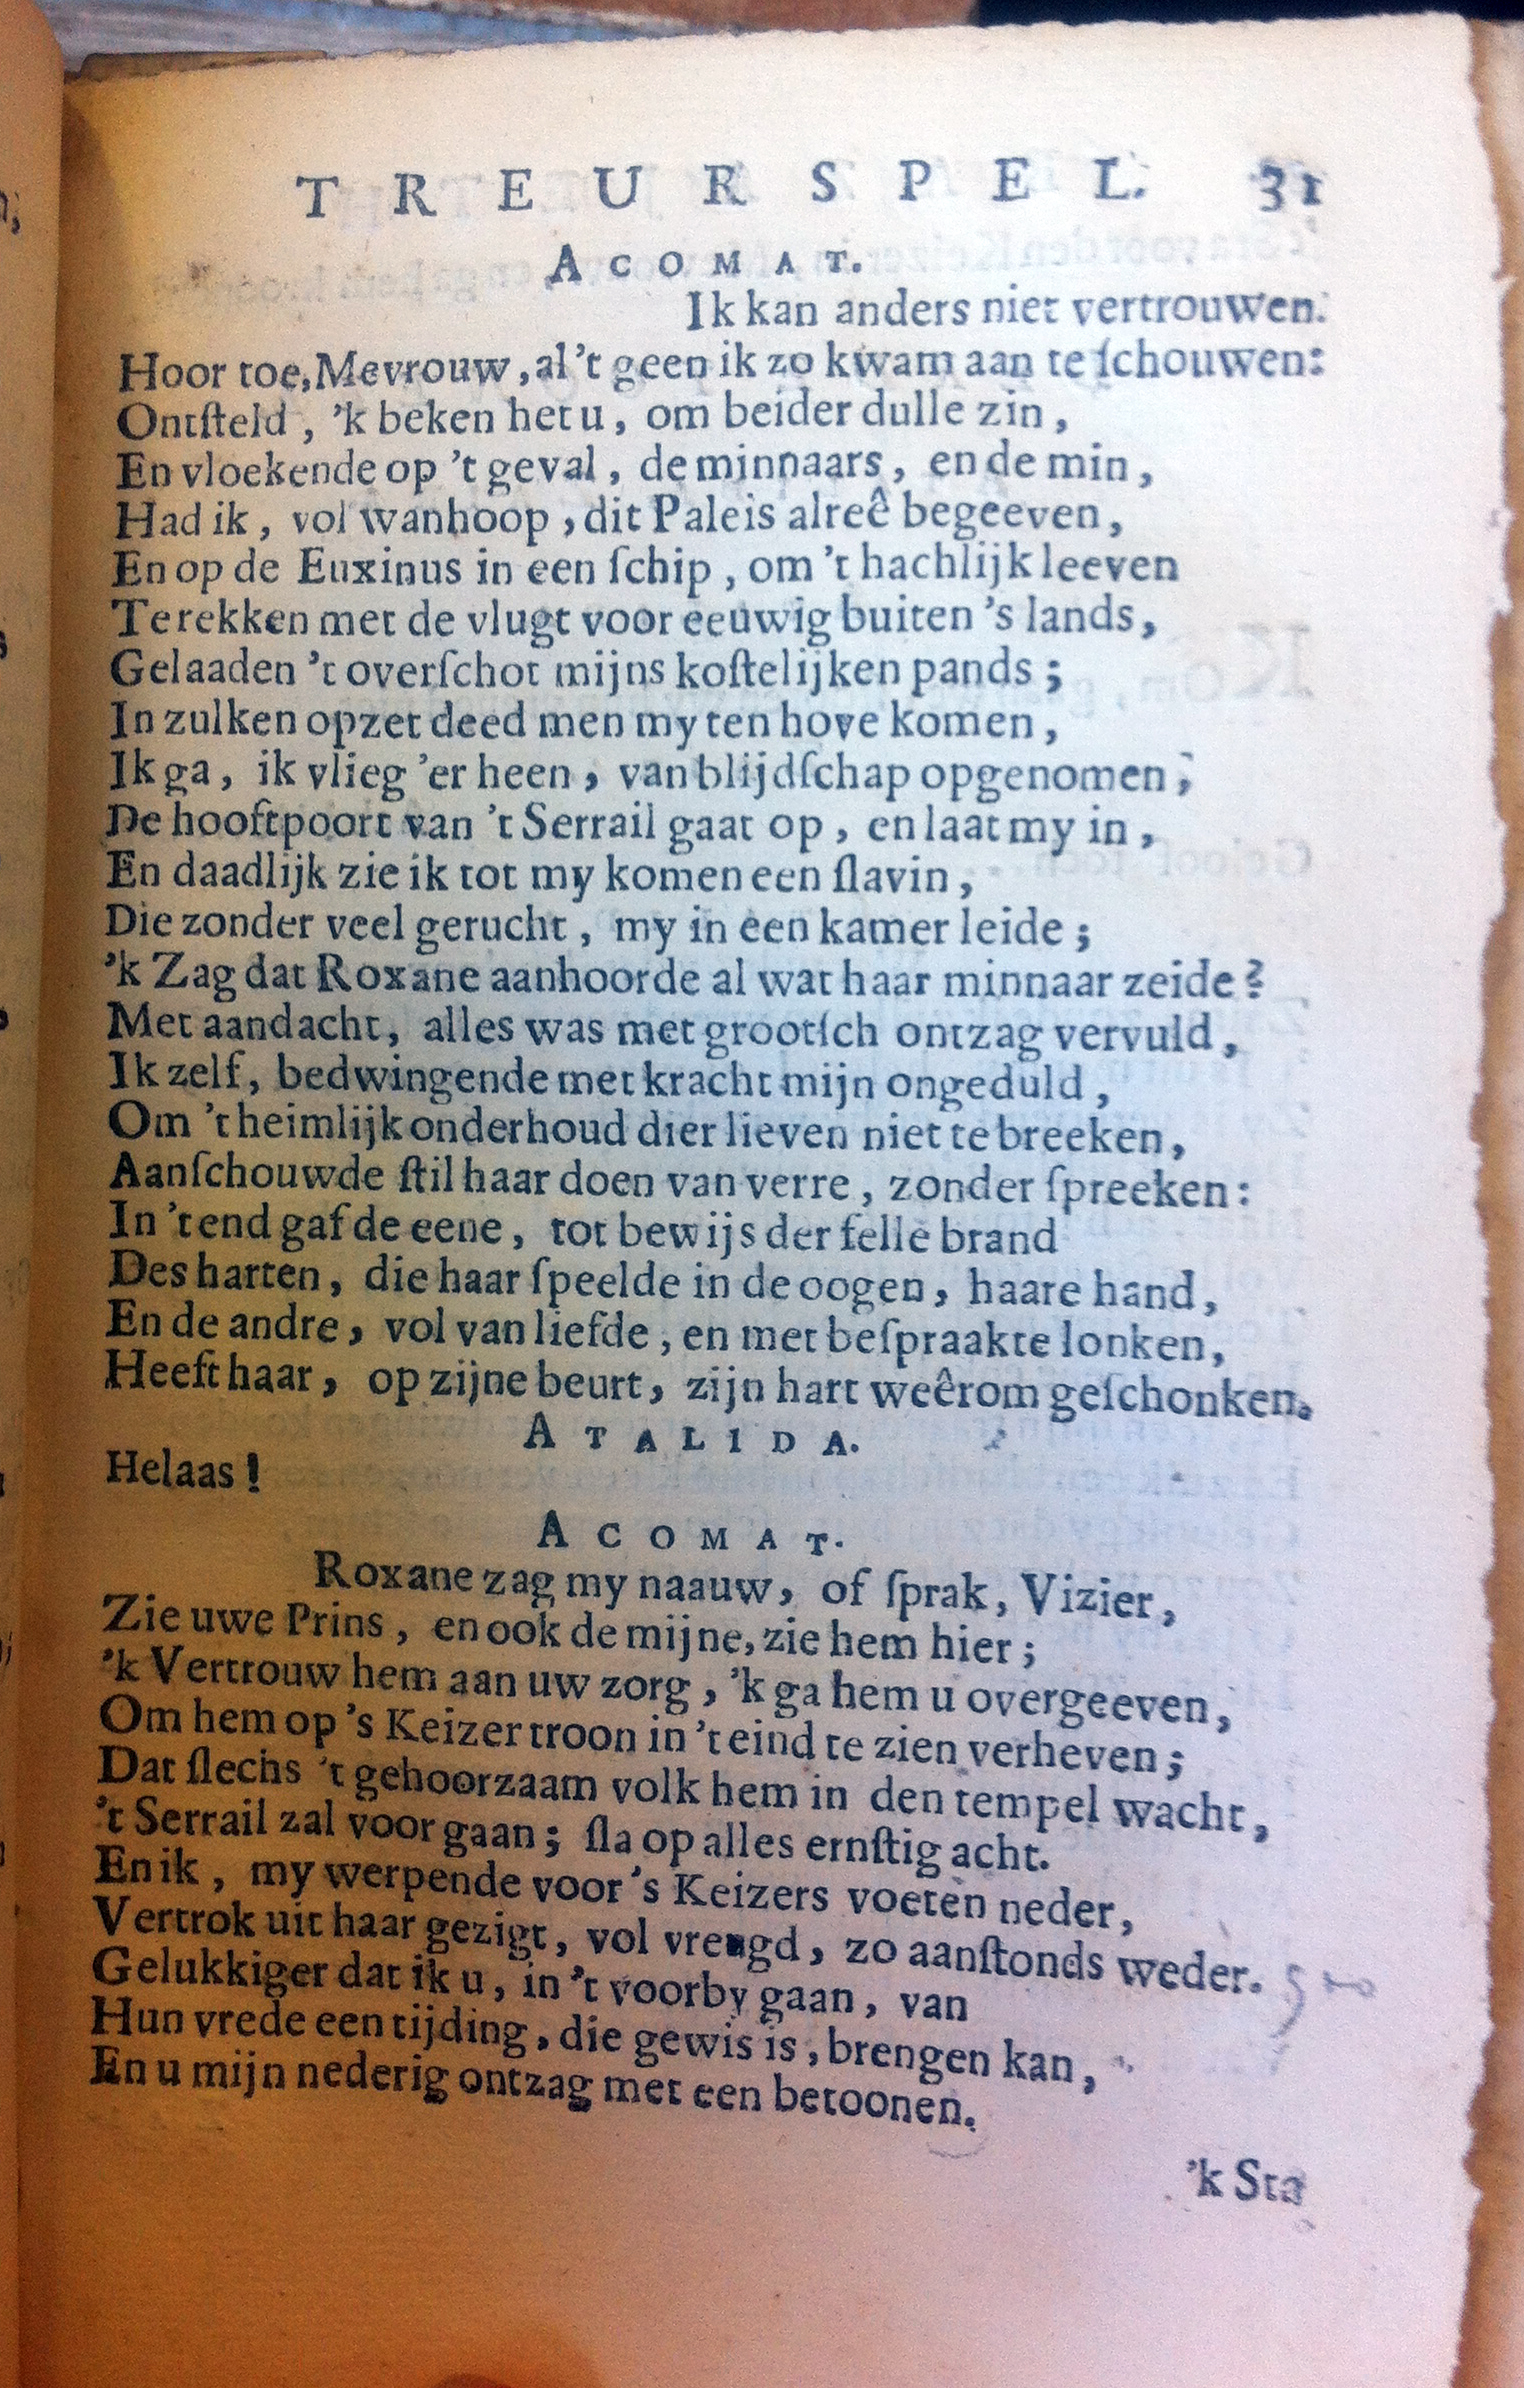 TREURSPEL. 31
ACOMAT.
Ik kan anders niet vertrouwen.
Hoor toe, Mevrouw, al 't geen ik zo kwam aan te ſchouwen:
Ontſteld, 'k beken het u, om beider dulle zin,
En vloekende op 't geval, de minnaars, en de min,
Had ik, vol wanhoop, dit Paleis alreê begeeven,
En op de Euxinus in een ſchip, om 't hachlijk leeven
Te rekken met de vlugt voor eeuwig buiten 's lands,
Gelaaden 't overſchot mijns koſtelijken pands;
In zulken opzet deed men my ten hove komen,
Ik ga, ik vlieg 'er heen, van blijdſchap opgenomen;
De hooftpoort van 't Serrail gaat op, en laat my in,
En daadlijk zie ik tot my komen een ſlavin,
Die zonder veel gerucht, my in een kamer leide;
'k Zag dat Roxane aanhoorde al wat haar minnaar zeide?
Met aandacht, alles was met grootſch ontzag vervuld,
Ik zelf, bedwingende met kracht mijn ongeduld,
Om 't heimlijk onderhoud dier lieven niet te breeken,
Aanſchouwde ſtil haar doen van verre, zonder ſpreeken:
In 't end gaf de eene, tot bewijs der felle brand
Des harten, die haar ſpeelde in de oogen, haare hand,
En de andre, vol van liefde, en met beſpraakte lonken,
Heeft haar, op zijne beurt, zijn hart weêrom geſchonken.
ATALIDA.
Helaas!
ACOMAT.
Roxane zag my naauw, of ſprak, Vizier,
Zie uwe Prins, en ook de mijne, zie hem hier;
'k Vertrouw hem aan uw zorg, 'k ga hem u overgeeven,
Om hem op 's Keizer troon in 't eind te zien verheven;
Dat ſlechs 't gehoorzaam volk hem in den tempel wacht,
't Serrail zal voor gaan; ſla op alles ernſtig acht.
En ik, my werpende voor 's Keizers voeten neder,
Vertrok uit haar gezigt, vol vreugd, zo aanſtonds weder.
Gelukkiger dat ik u, in 't voorby gaan, van
Hun vrede een tijding, die gewis is, brengen kan,
En u mijn nederig ontzag met een betoonen.
'k Sta